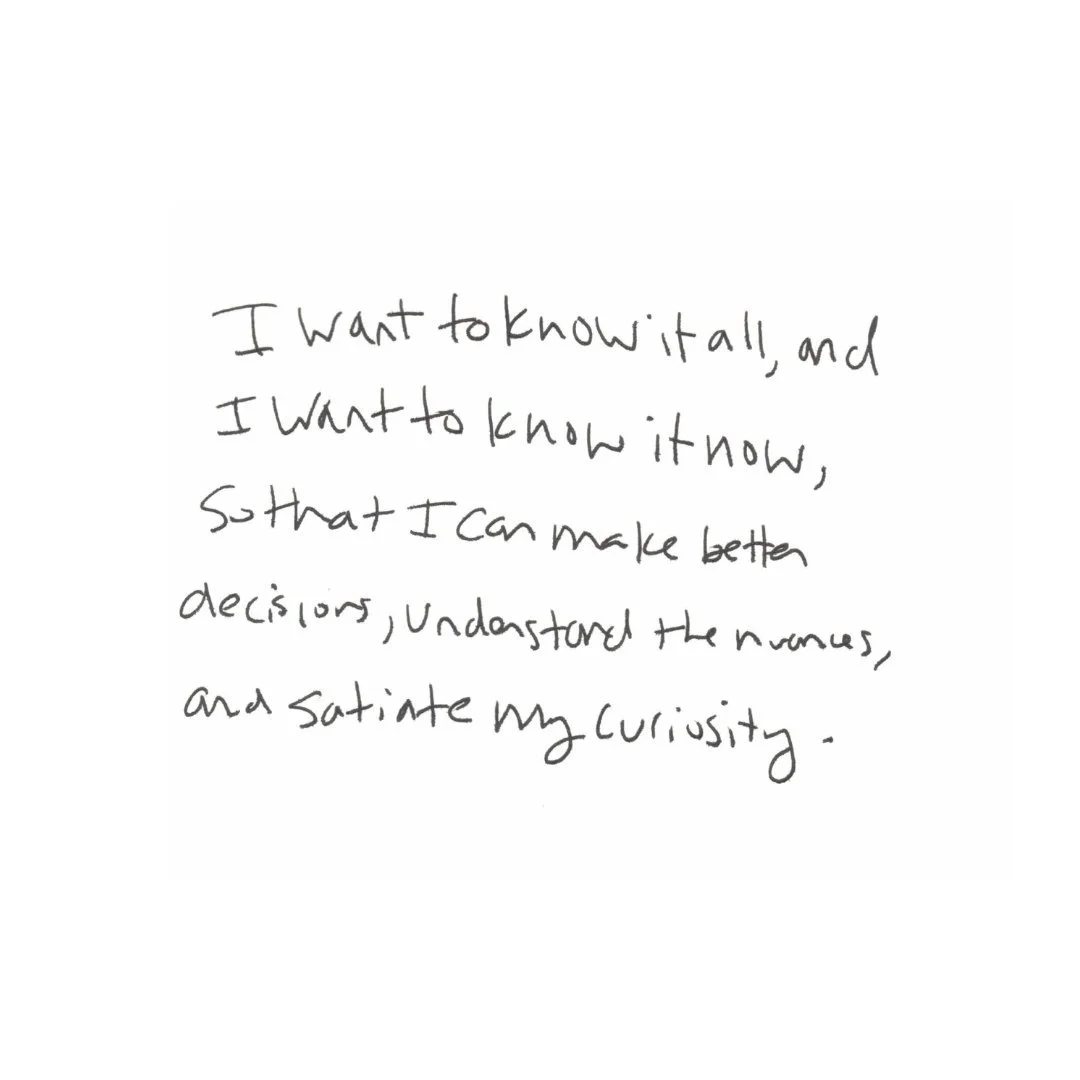 I want to know it all, and
I want to know it now,
so that I can make better
decisions, understand the nuances,
and satiate my curiosity.